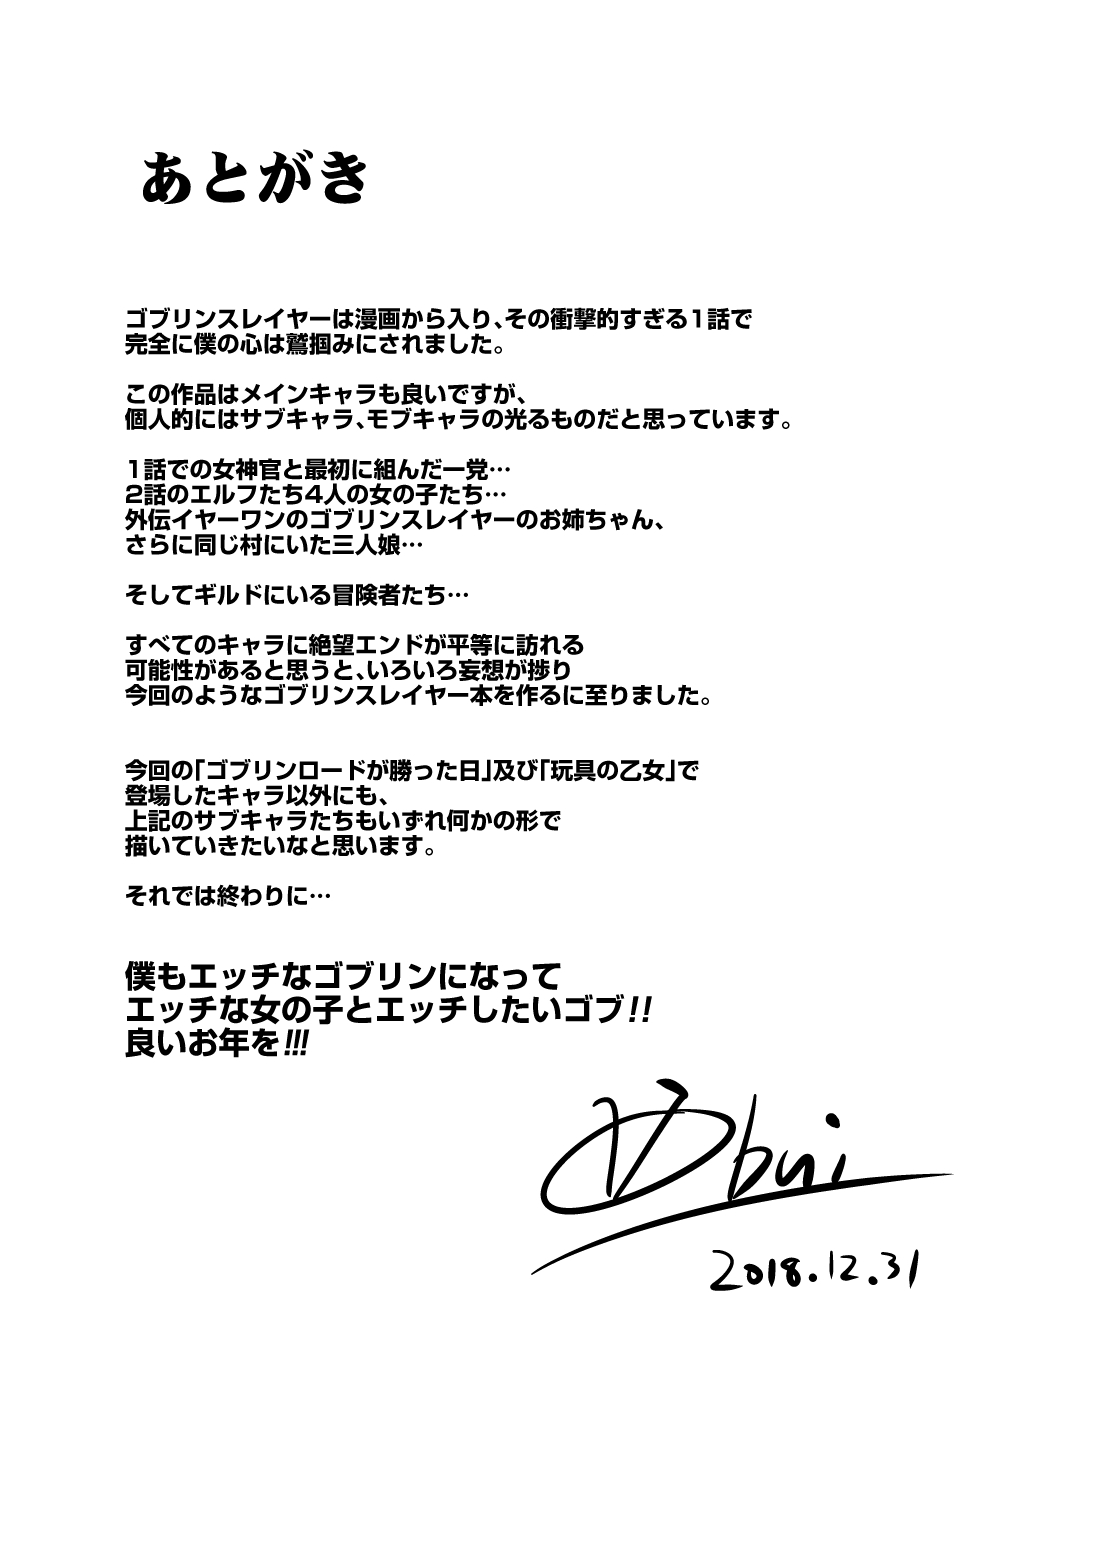 あとがき
ゴブリンスレイヤーは漫画から入り、その衝撃的すぎる1話で
完全に僕の心は鷲掴みにされました。
この作品はメインキャラも良いですが、
個人的にはサブキャラ、モブキャラの光るものだと思っています。
1話での女神官と最初に組んだ一党…
2話のエルフたち4人の女の子たち…
外伝イヤーワンのゴブリンスレイヤーのお姉ちゃん、
さらに同じ村にいた三人娘…
そしてギルドにいる冒険者たち…
すべてのキャラに絶望エンドが平等に訪れる
可能性があると思うと、いろいろ妄想が捗り
今回のようなゴブリンスレイヤー本を作るに至りました。
今回の「ゴブリンロードが勝った日」及び「玩具の乙女」で
登場したキャラ以外にも、
上記のサブキャラたちもいずれ何かの形で
描いていきたいなと思います。
それでは終わりに…
僕もエッチなゴブリンになって
エッチな女の子とエッチしたいゴブ!!
良いお年を!!!
2018.12.31